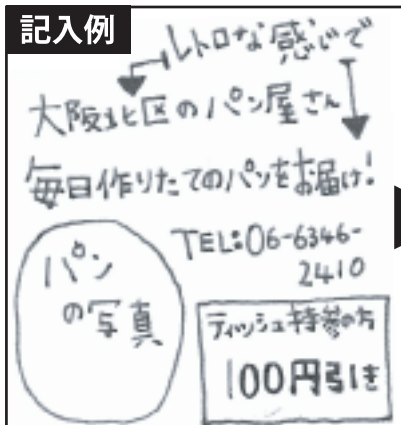 記入例
レトロな感じで
大阪北区のパン屋さん
毎日作りたてのパンをお届け!
TEL:06-6346-
2410
パン
の写真
ティッシュ持参の方
100円引き